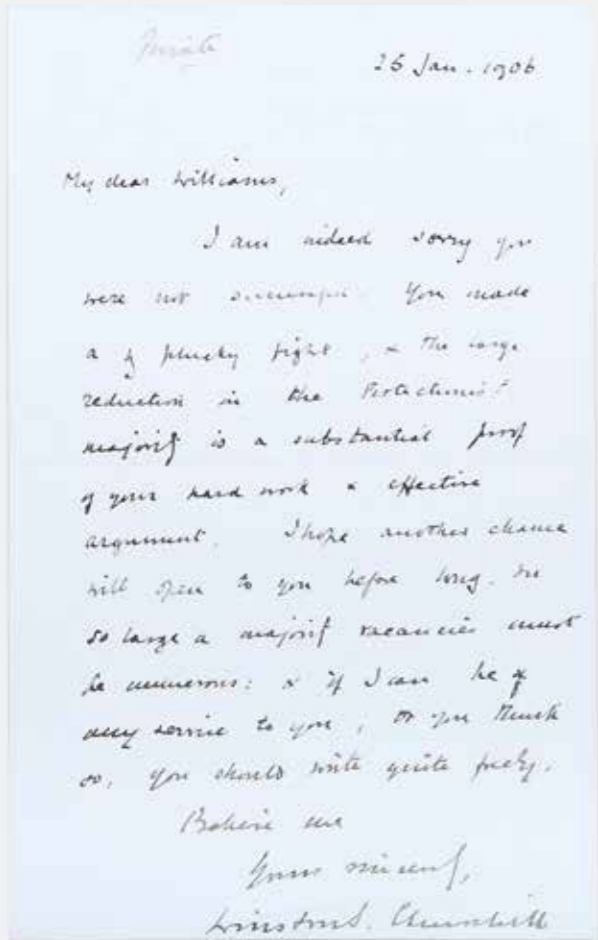 Private
25 Jan. 1906
My dear Williams,
I am indeed sorry you
were not successful. You made
a plucky fight, & the large
reduction in the Protectionist
majority is a substantial proof
of your hard work & effective
argument. I hope another chance
will open to you before long. In
so large a majority vacancies must
be numerous: & if I can be of
any service to you, or you think
so, you should write quite freely.
Believe me
Yours sincerely,
Winston S. Churchill